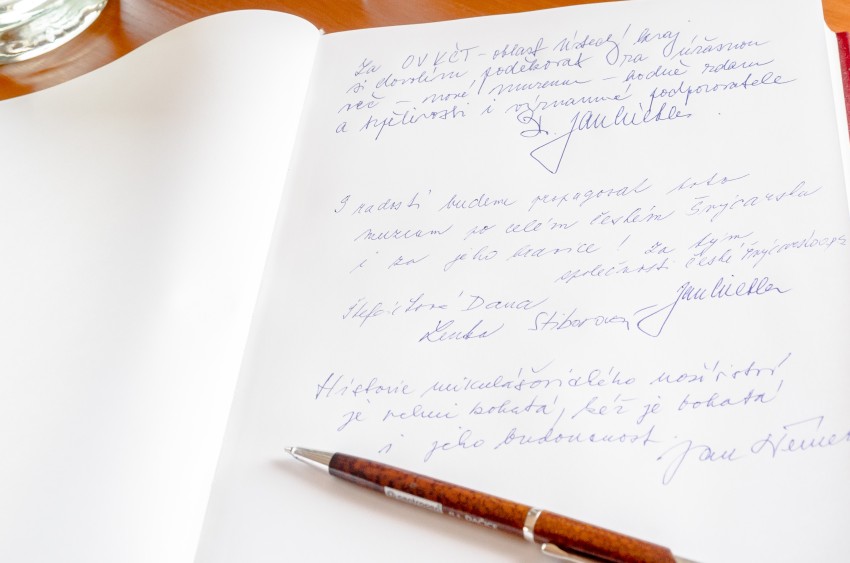 Za OV KČT - oblast Ústecký kraj
si dovolím poděkovat za úžasnou
věc - nové muzeum - hodně zdaru
a trpělivosti i významné podporovatele
S radostí budem propagovat toto
muzeum po celém Českém Švýcarsku
i za jeho hranice! Za tým
společnosti České Švýcarsko ops
Dana
Lenka Stiborová
Historie mikulášovického nožířství
je velmi bohatá, též je bohatá
i jeho budoucnost. Jan Němec